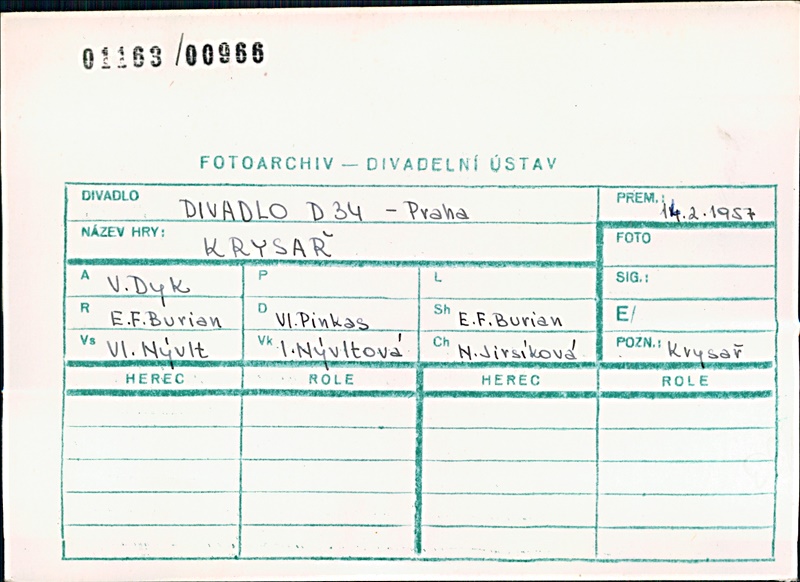 01163/00966
FOTOARCHIV — DIVADELNÍ ÚSTAV
DIVADLO DIVADLO D 34 - Praha PREM.: 14.2.1957
NÁZEV HRY: KRYSAŘ FOTO
A V. Dyk P L SIG.:
R E.F. Burian D Vl. Pinkas Sh E.F. Burian E/
Vs Vl. Nývlt Vk I. Nývltová Ch N. Jirsíková POZN.: Krysař
HEREC ROLE HEREC ROLE